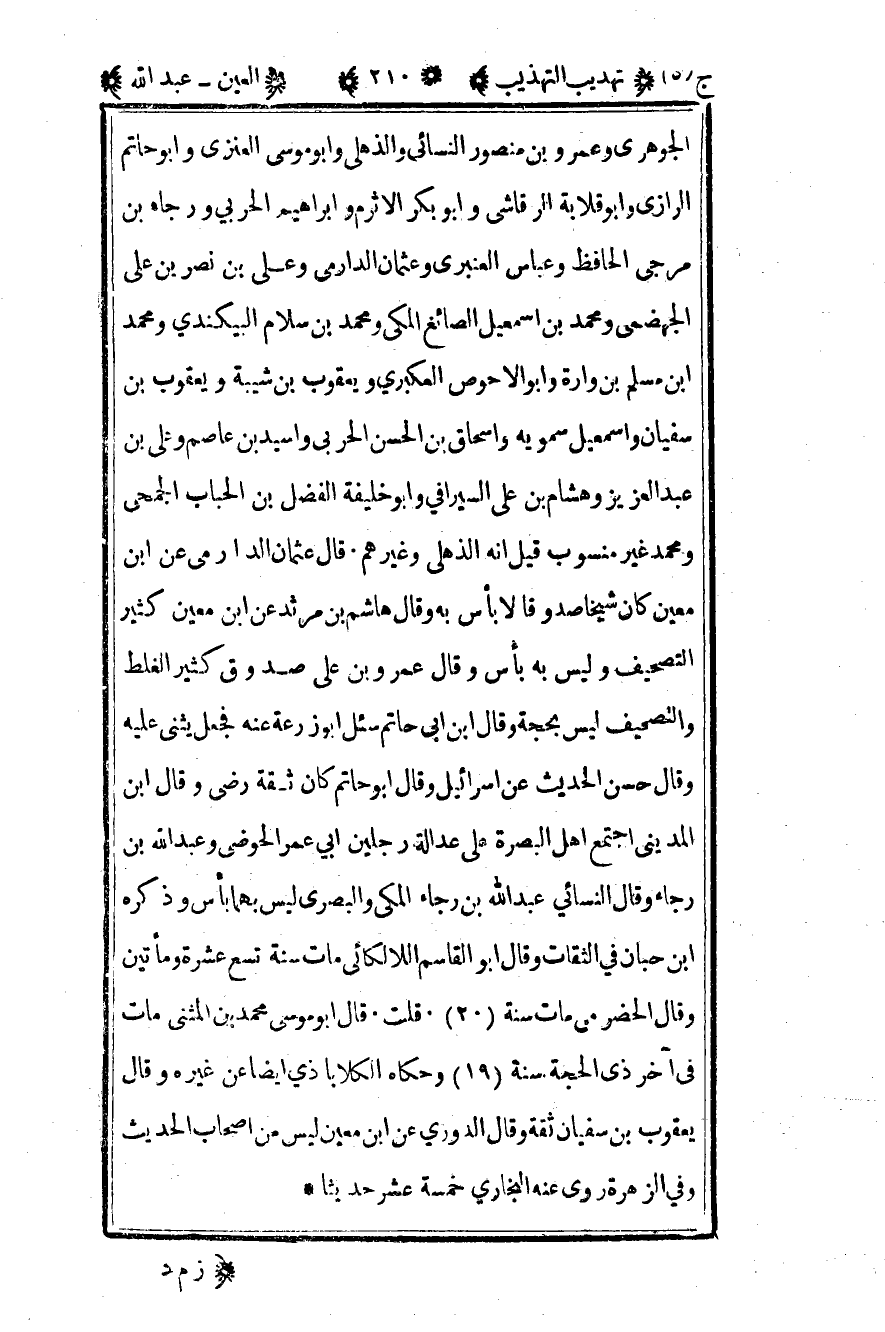 ج (٥) تهذيب التهذيب ٢١٠ العين - عبد الله
الجوهرى وعمرو بن منصور النسائى والذهلى وابوموسى العنزى وابوحاتم
الرازى وابوقلابة الرقاشى وابوبكر الاثرم وابراهيم الحربي ورجاء بن
مرجى الحافظ وعباس العنبرى وعثمان الدارمى وعلى بن نصر بن على
الجهضمى ومحمد بن اسمعيل الصائغ المكى ومحمد بن سلام البيكندي ومحمد
ابن مسلم بن وارة وابوالاحوص العكبري ويعقوب بن شيبة ويعقوب بن
سفيان واسمعيل سمويه واسحاق بن الحسن الحربى واسيد بن عاصم وعلى بن
عبدالعزيز وهشام بن على السيرافي وابوخليفة الفضل بن الحباب الجمحى
ومحمد غير منسوب قيل انه الذهلى وغيرهم ٠ قال عثمان الدارمى عن ابن
معين كان شيخا صدوقا لا بأس به وقال هاشم بن مرثد عن ابن معين كثير
التصحيف وليس به بأس وقال عمرو بن على صدوق كثير الغلط
والتصحيف ليس بحجة وقال ابن ابى حاتم سئل ابوزرعة عنه فجعل يثنى عليه
وقال حسن الحديث عن اسرائيل وقال ابوحاتم كان ثقة رضى وقال ابن
المدينى اجتمع اهل البصرة على عدالة رجلين ابي عمر الحوضى وعبدالله بن
رجاء وقال النسائي عبدالله بن رجاء المكى والبصرى ليس بهما بأس وذكره
ابن حبان في الثقات وقال ابو القاسم اللالكائى مات سنة تسع عشرة ومأتين
وقال الحضرمى مات سنة (٢٠) ٠ قلت ٠ قال ابوموسى محمد بن المثنى مات
فى آخر ذى الحجة سنة (١٩) وحكاه الكلاباذي ايضا عن غيره وقال
يعقوب بن سفيان ثقة وقال الدوري عن ابن معين ليس من اصحاب الحديث
وفي الزهرة روى عنه البخاري خمسة عشر حديثا *
ز م د